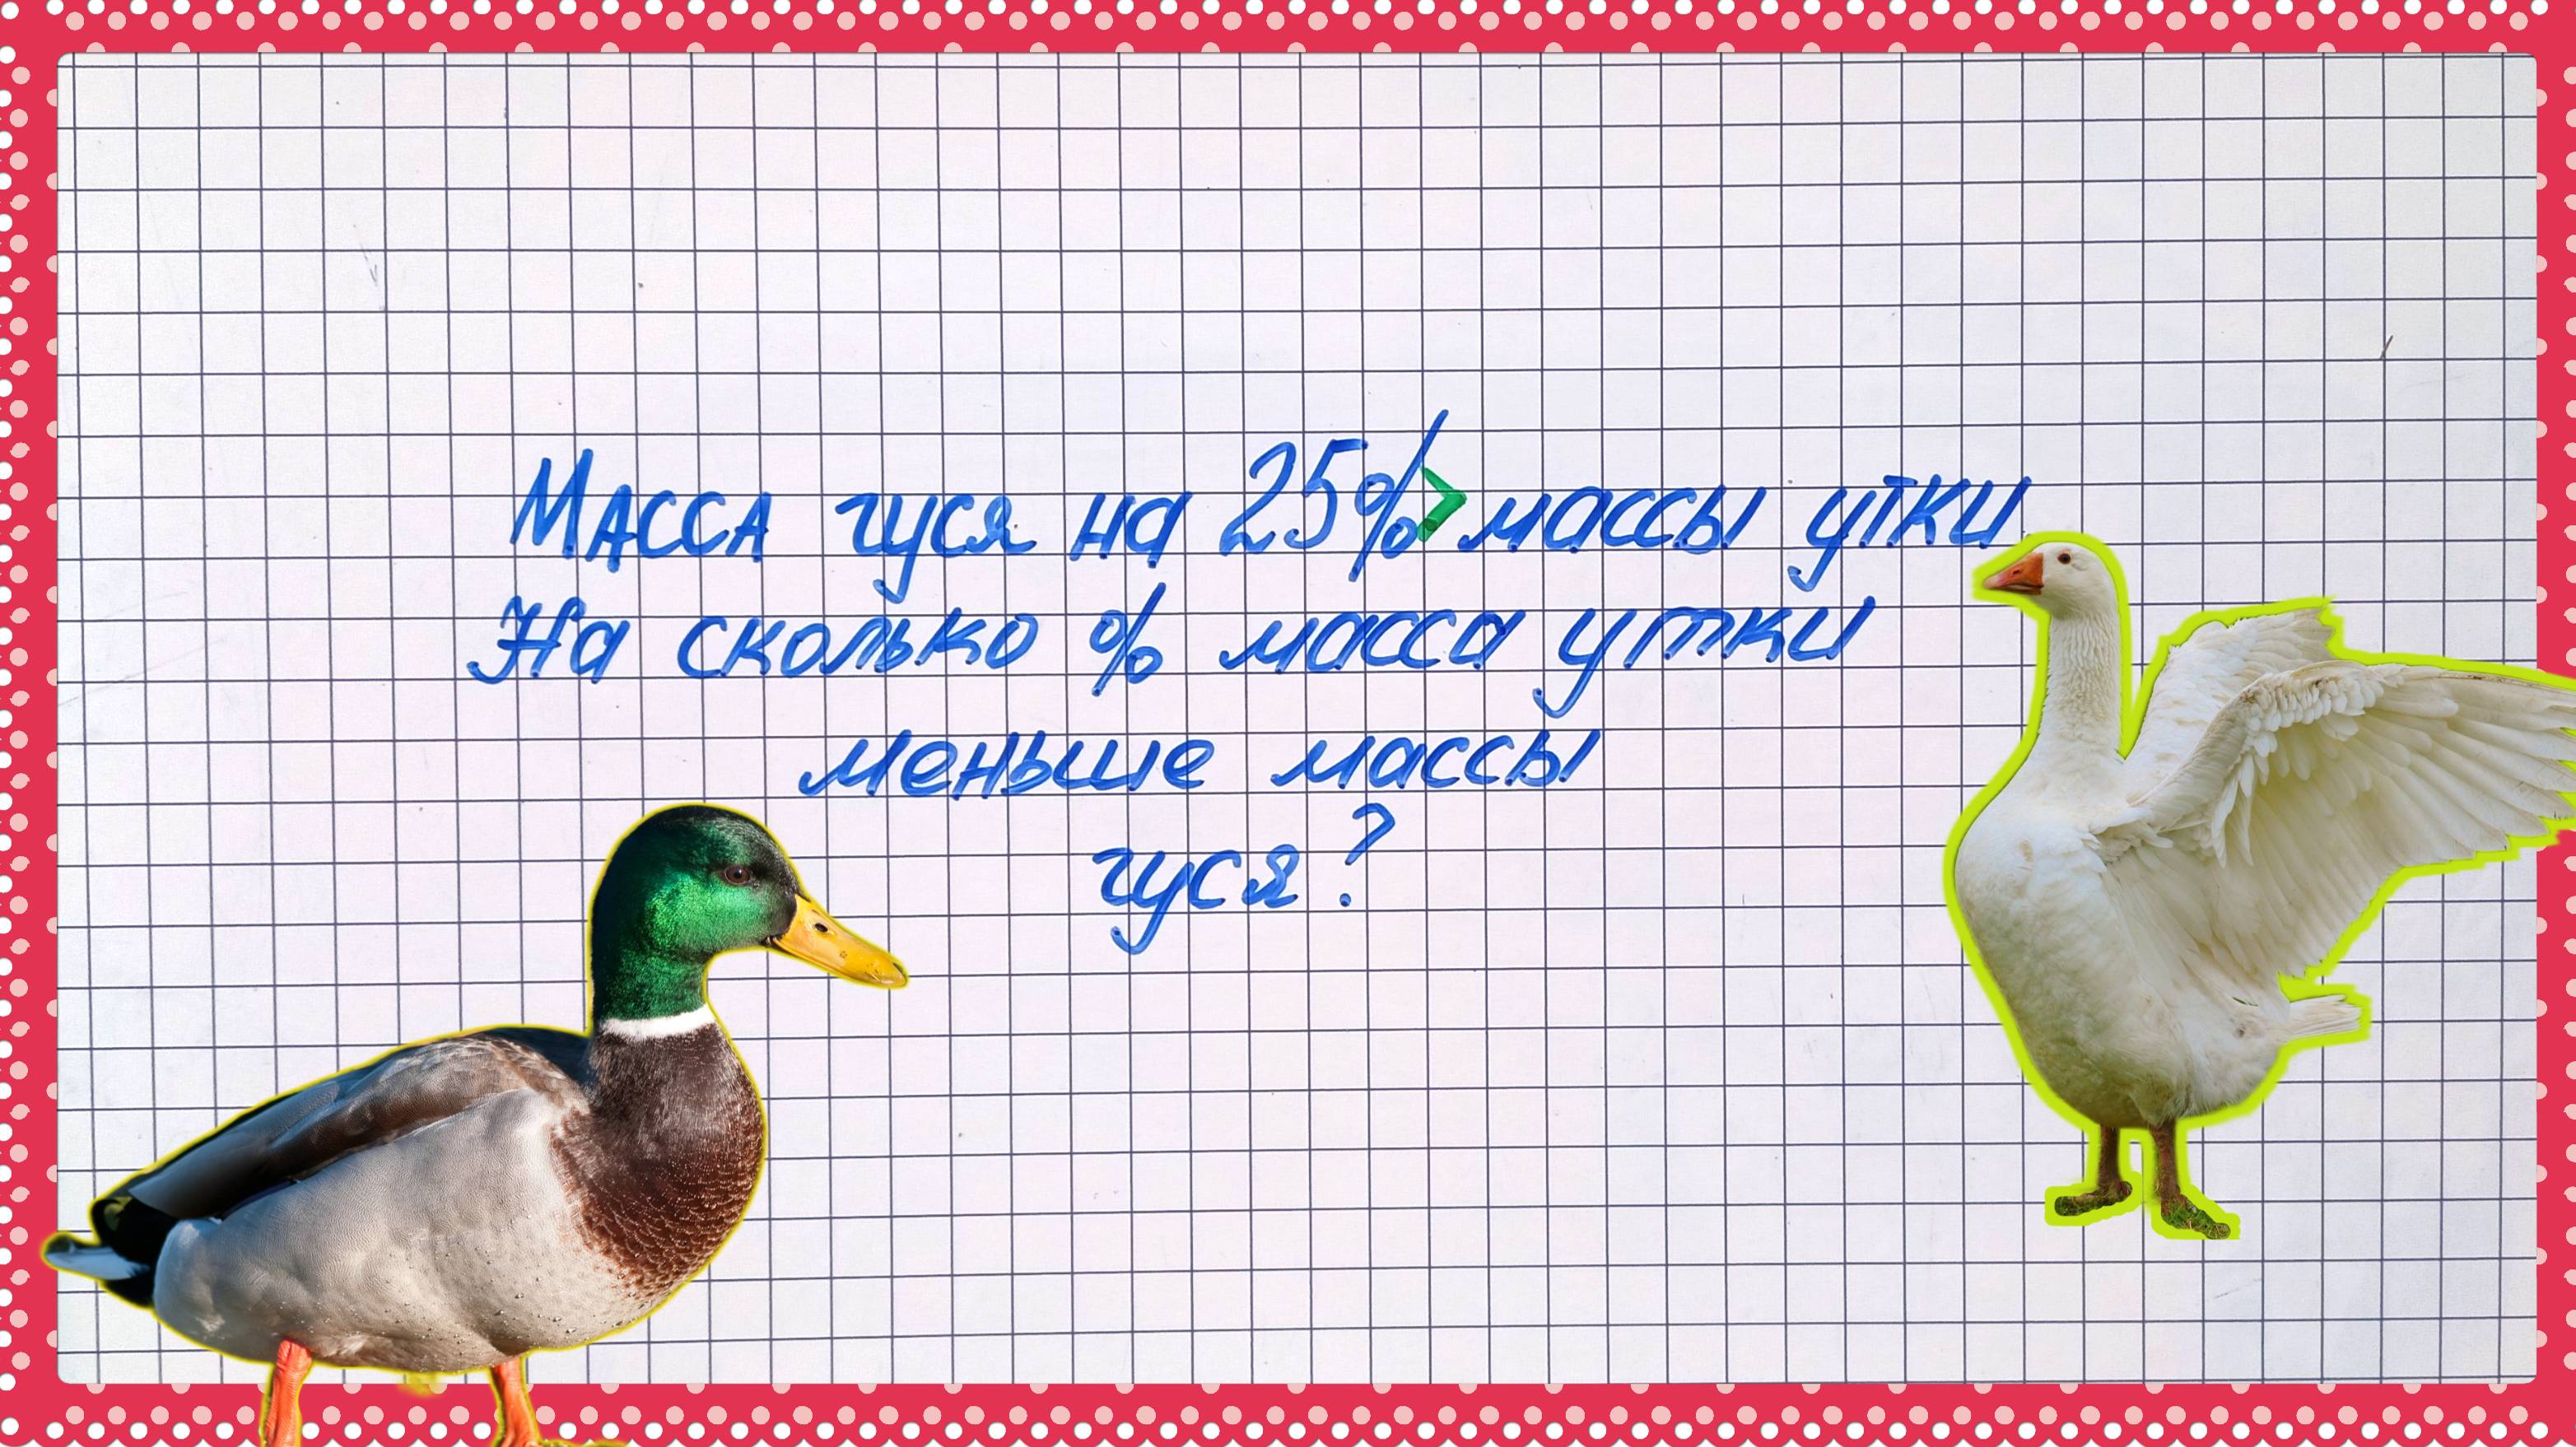 Масса гуся на 25% > массы утки
На сколько % масса утки
меньше массы
гуся?